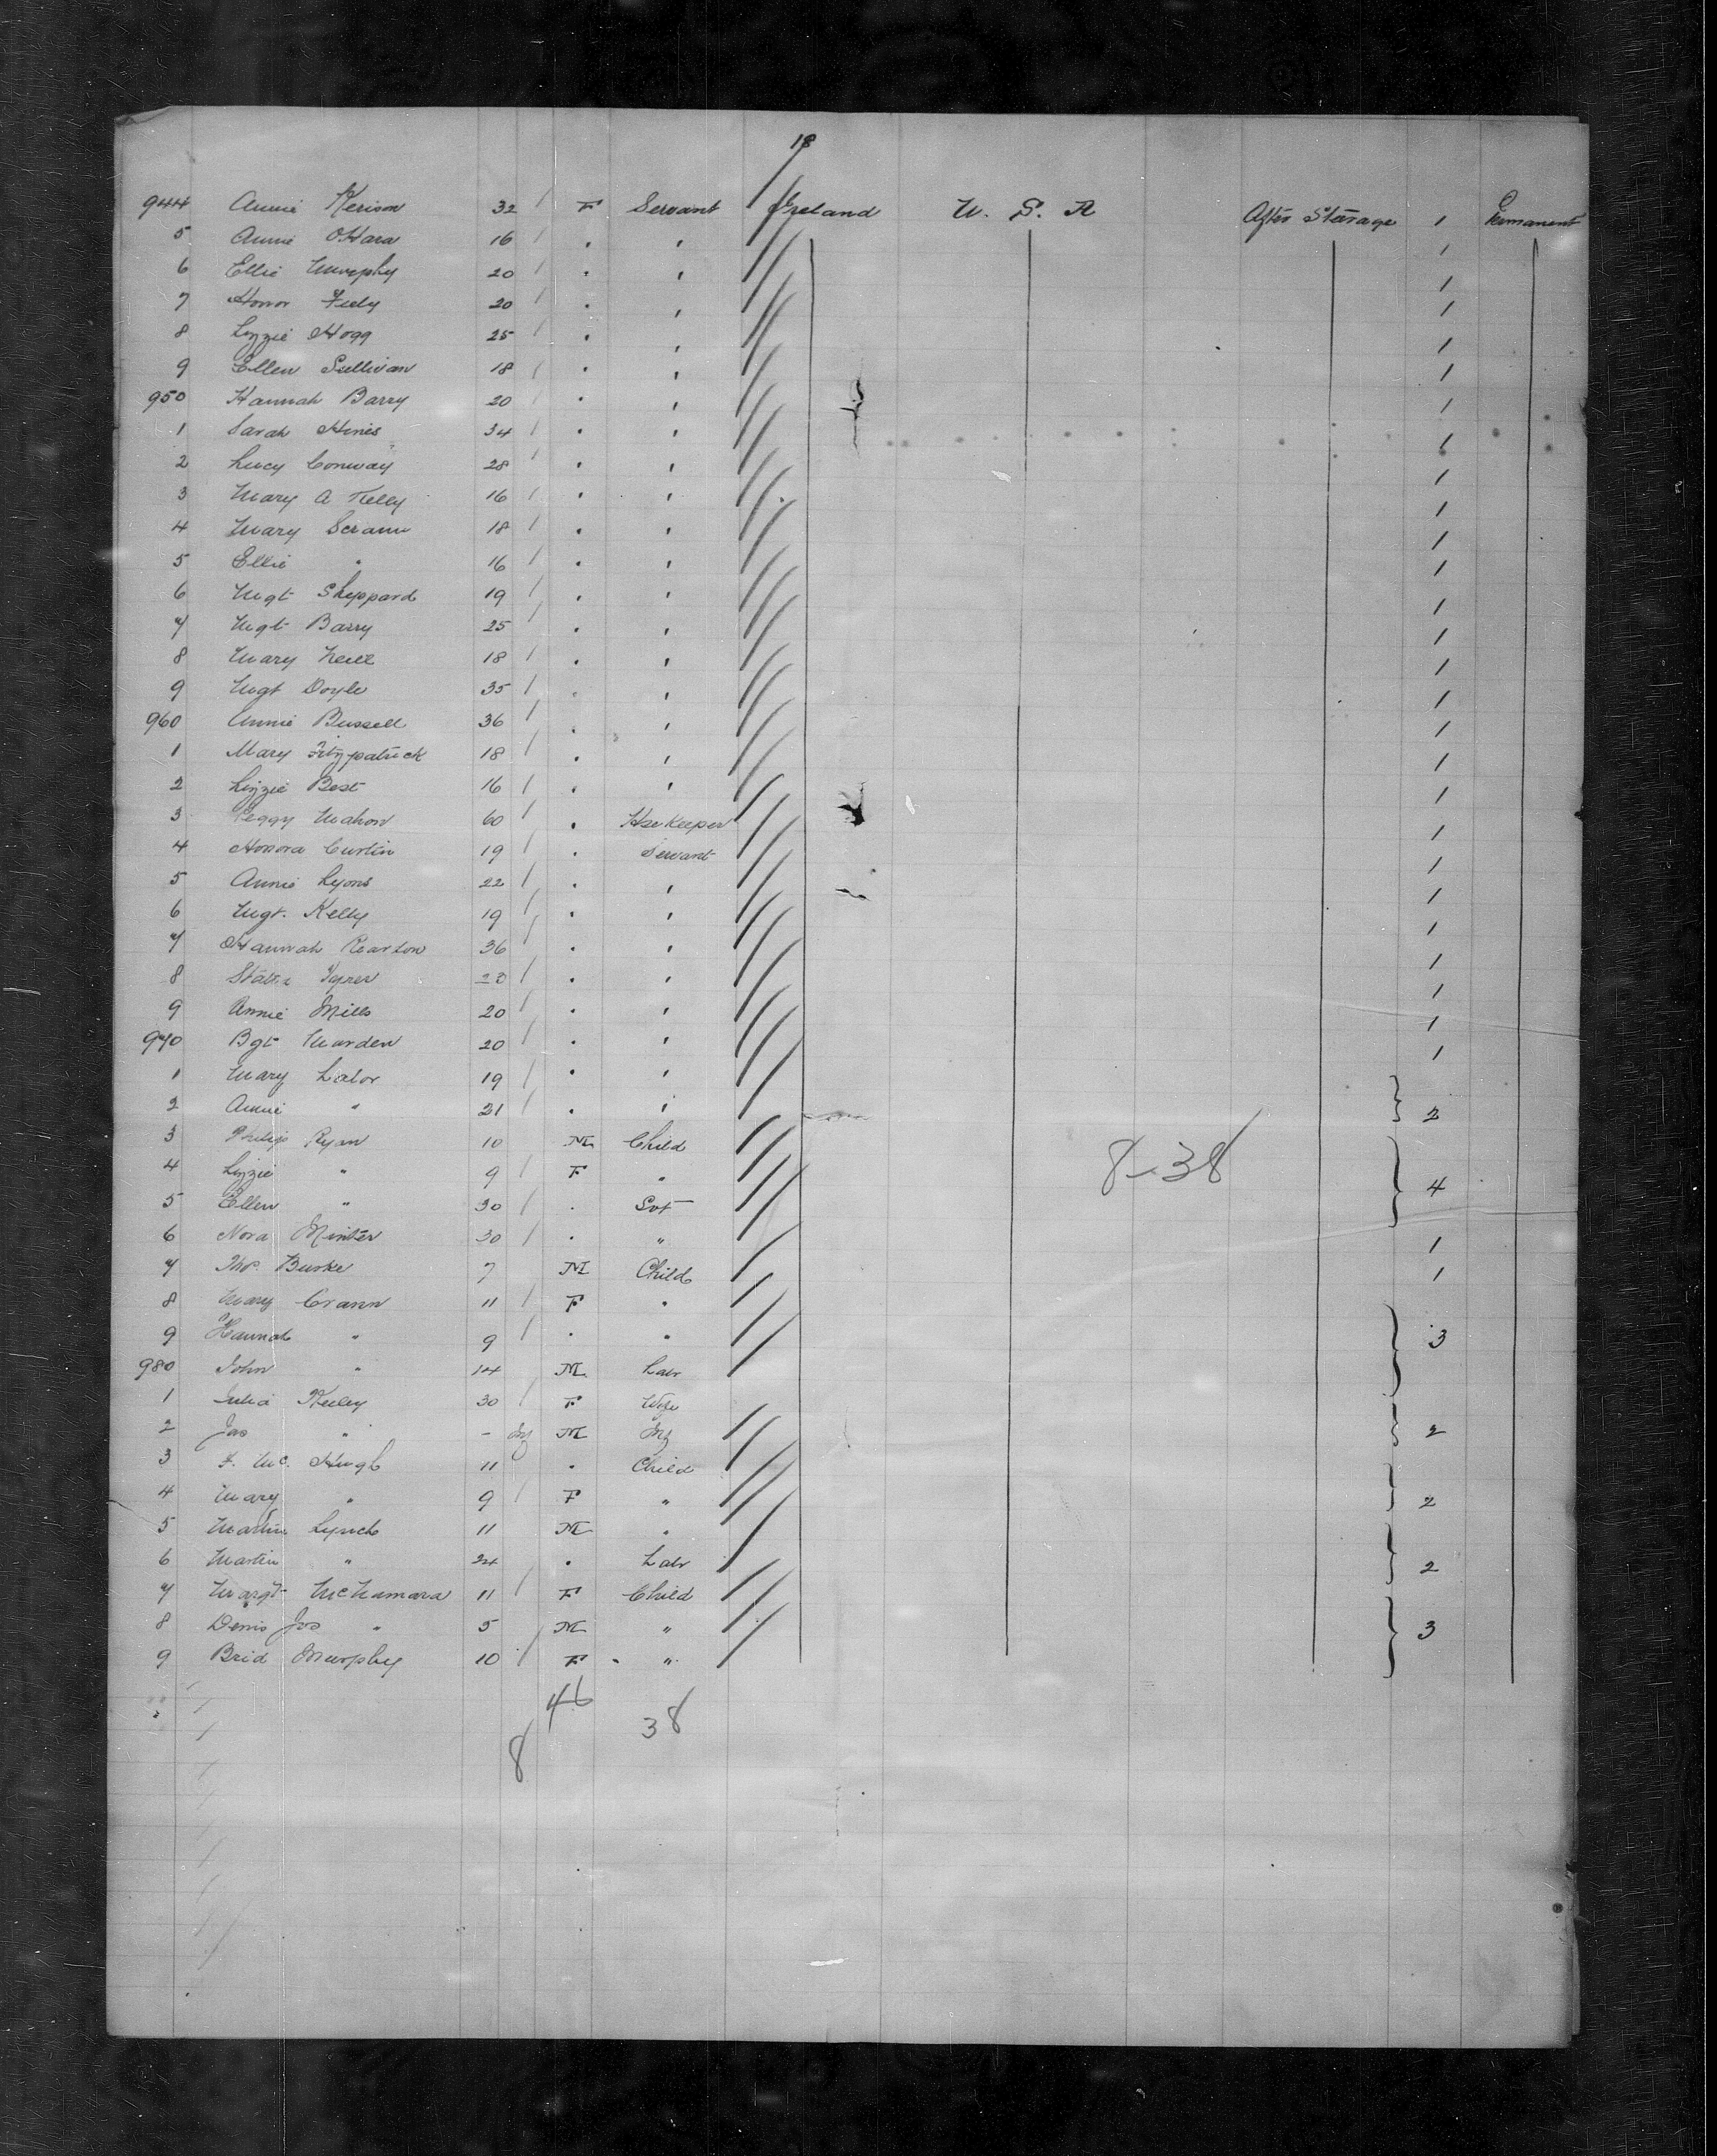 18
944 Annie Kerison 32 / F Servant Ireland U. S. A After Steerage 1 Permanent
5 Annie OHara 16 / " " 1
6 Ellie Murphy 20 / " " 1
7 Honor Feely 20 / " " 1
8 Lizzie Hogg 25 / " " 1
9 Ellen Sullivan 18 / " " 1
950 Hannah Barry 20 / " " 1
1 Sarah Hines 34 / " " 1
2 Lucy Conway 28 / " " 1
3 Mary A 16 / " " 1
4 Mary 18 / " " 1
5 Ellie " 16 / " " 1
6 Mgt Sheppard 19 / " " 1
7 Mgt Barry 25 / " " 1
8 Mary Neill 18 / " " 1
9 Mgt Doyle 35 / " " 1
960 Annie Bussell 36 / " " 1
1 Mary Fitzpatrick 18 / " " 1
2 Lizzie Best 16 / " " 1
3 Peggy Mahon 60 / " Hsekeeper 1
4 Honora Curtin 19 / " Servant 1
5 Annie Lyons 22 / " " 1
6 Mgt. Kelly 19 / " " 1
7 Hannah Rearton 36 / " " 1
8 23 / " " 1
9 Annie Mills 20 / " " 1
970 Bgt Marden 20 / " " 1
1 Mary Lalor 19 / " "
2 Annie " 21 / " " 2
3 Philip Ryan 10 M Child
4 Lizzie " 9 / F " 8-38 4
5 Ellen " 30 / " Svt
6 Nora Minter 30 / " " 1
7 Thos. Burke 7 M Child 1
8 Mary Crann 11 / F "
9 Hannah " 9 / " " 3
980 John " 14 M Labr
1 Julia Keeley 30 / F Wife
2 Jas " - Inf M Inf 2
3 F. McHugh 11 " Child
4 Mary " 9 / F " 2
5 Martin Lynch 11 M "
6 Martin " 24 " Labr 2
7 Margt McNamara 11 / F Child
8 Denis Jos " 5 M " 3
9 Brid Murphy 10 / F "
46
8 38